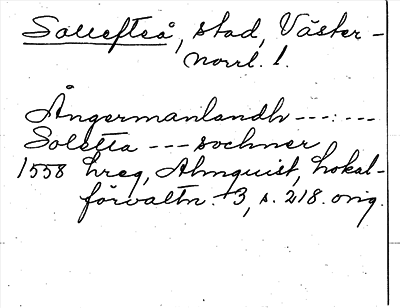 Sollefteå, stad, Väster-
norrl. l.
Ångermanlandh ---:---
Soletta --- sochner
1558 hreg, Almquist, Lokal-
förvaltn. 3, s. 218. orig.